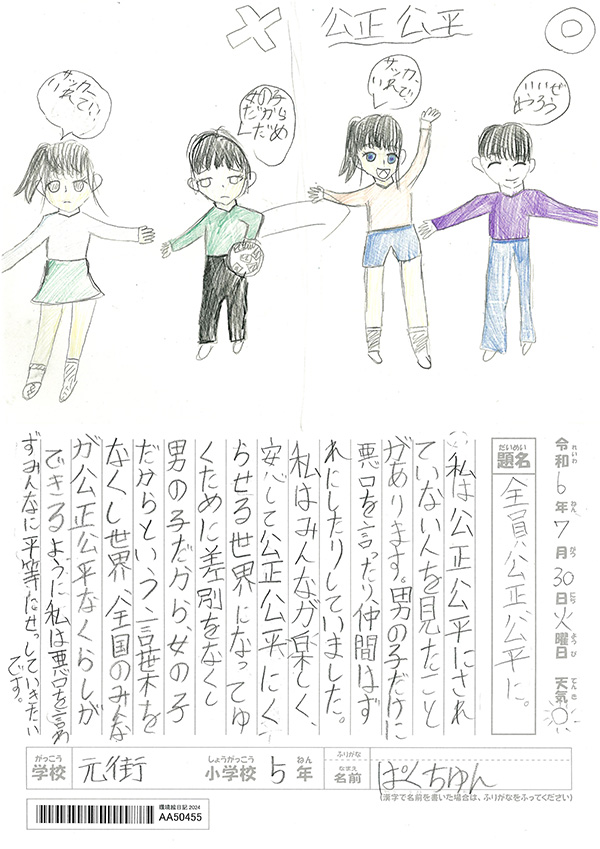 公正公平
サッカー、
いれて！！
女の子
だから
だめ
サッカー、
いれて！！
いいぜ
やろう
令和6年7月30日火曜日 天気
れいわ ねん がつ にち ようび てんき
だいめい
題名
全員公正公平に。
私は公正公平にされ
ていない人を見たこと
があります。男の子だけに
悪口を言ったり、仲間はず
れにしたりしていました。
私はみんなが楽しく、
安心して公正公平にく
らせる世界になってゆ
くために差別をなくし
男の子だから、女の子
だからという言葉を
なくし世界、全国のみんな
が公正公平なくらしが
できるように私は悪口を言わ
ずみんなに平等にせっしていきたい
です。
がっこう
学校
元街
しょうがっこう
小学校
5
ねん
年
ふりがな
なまえ
名前
ぱくちゅん
(漢字で名前を書いた場合は、ふりがなをふってください)
環境絵日記 2024
AA50455